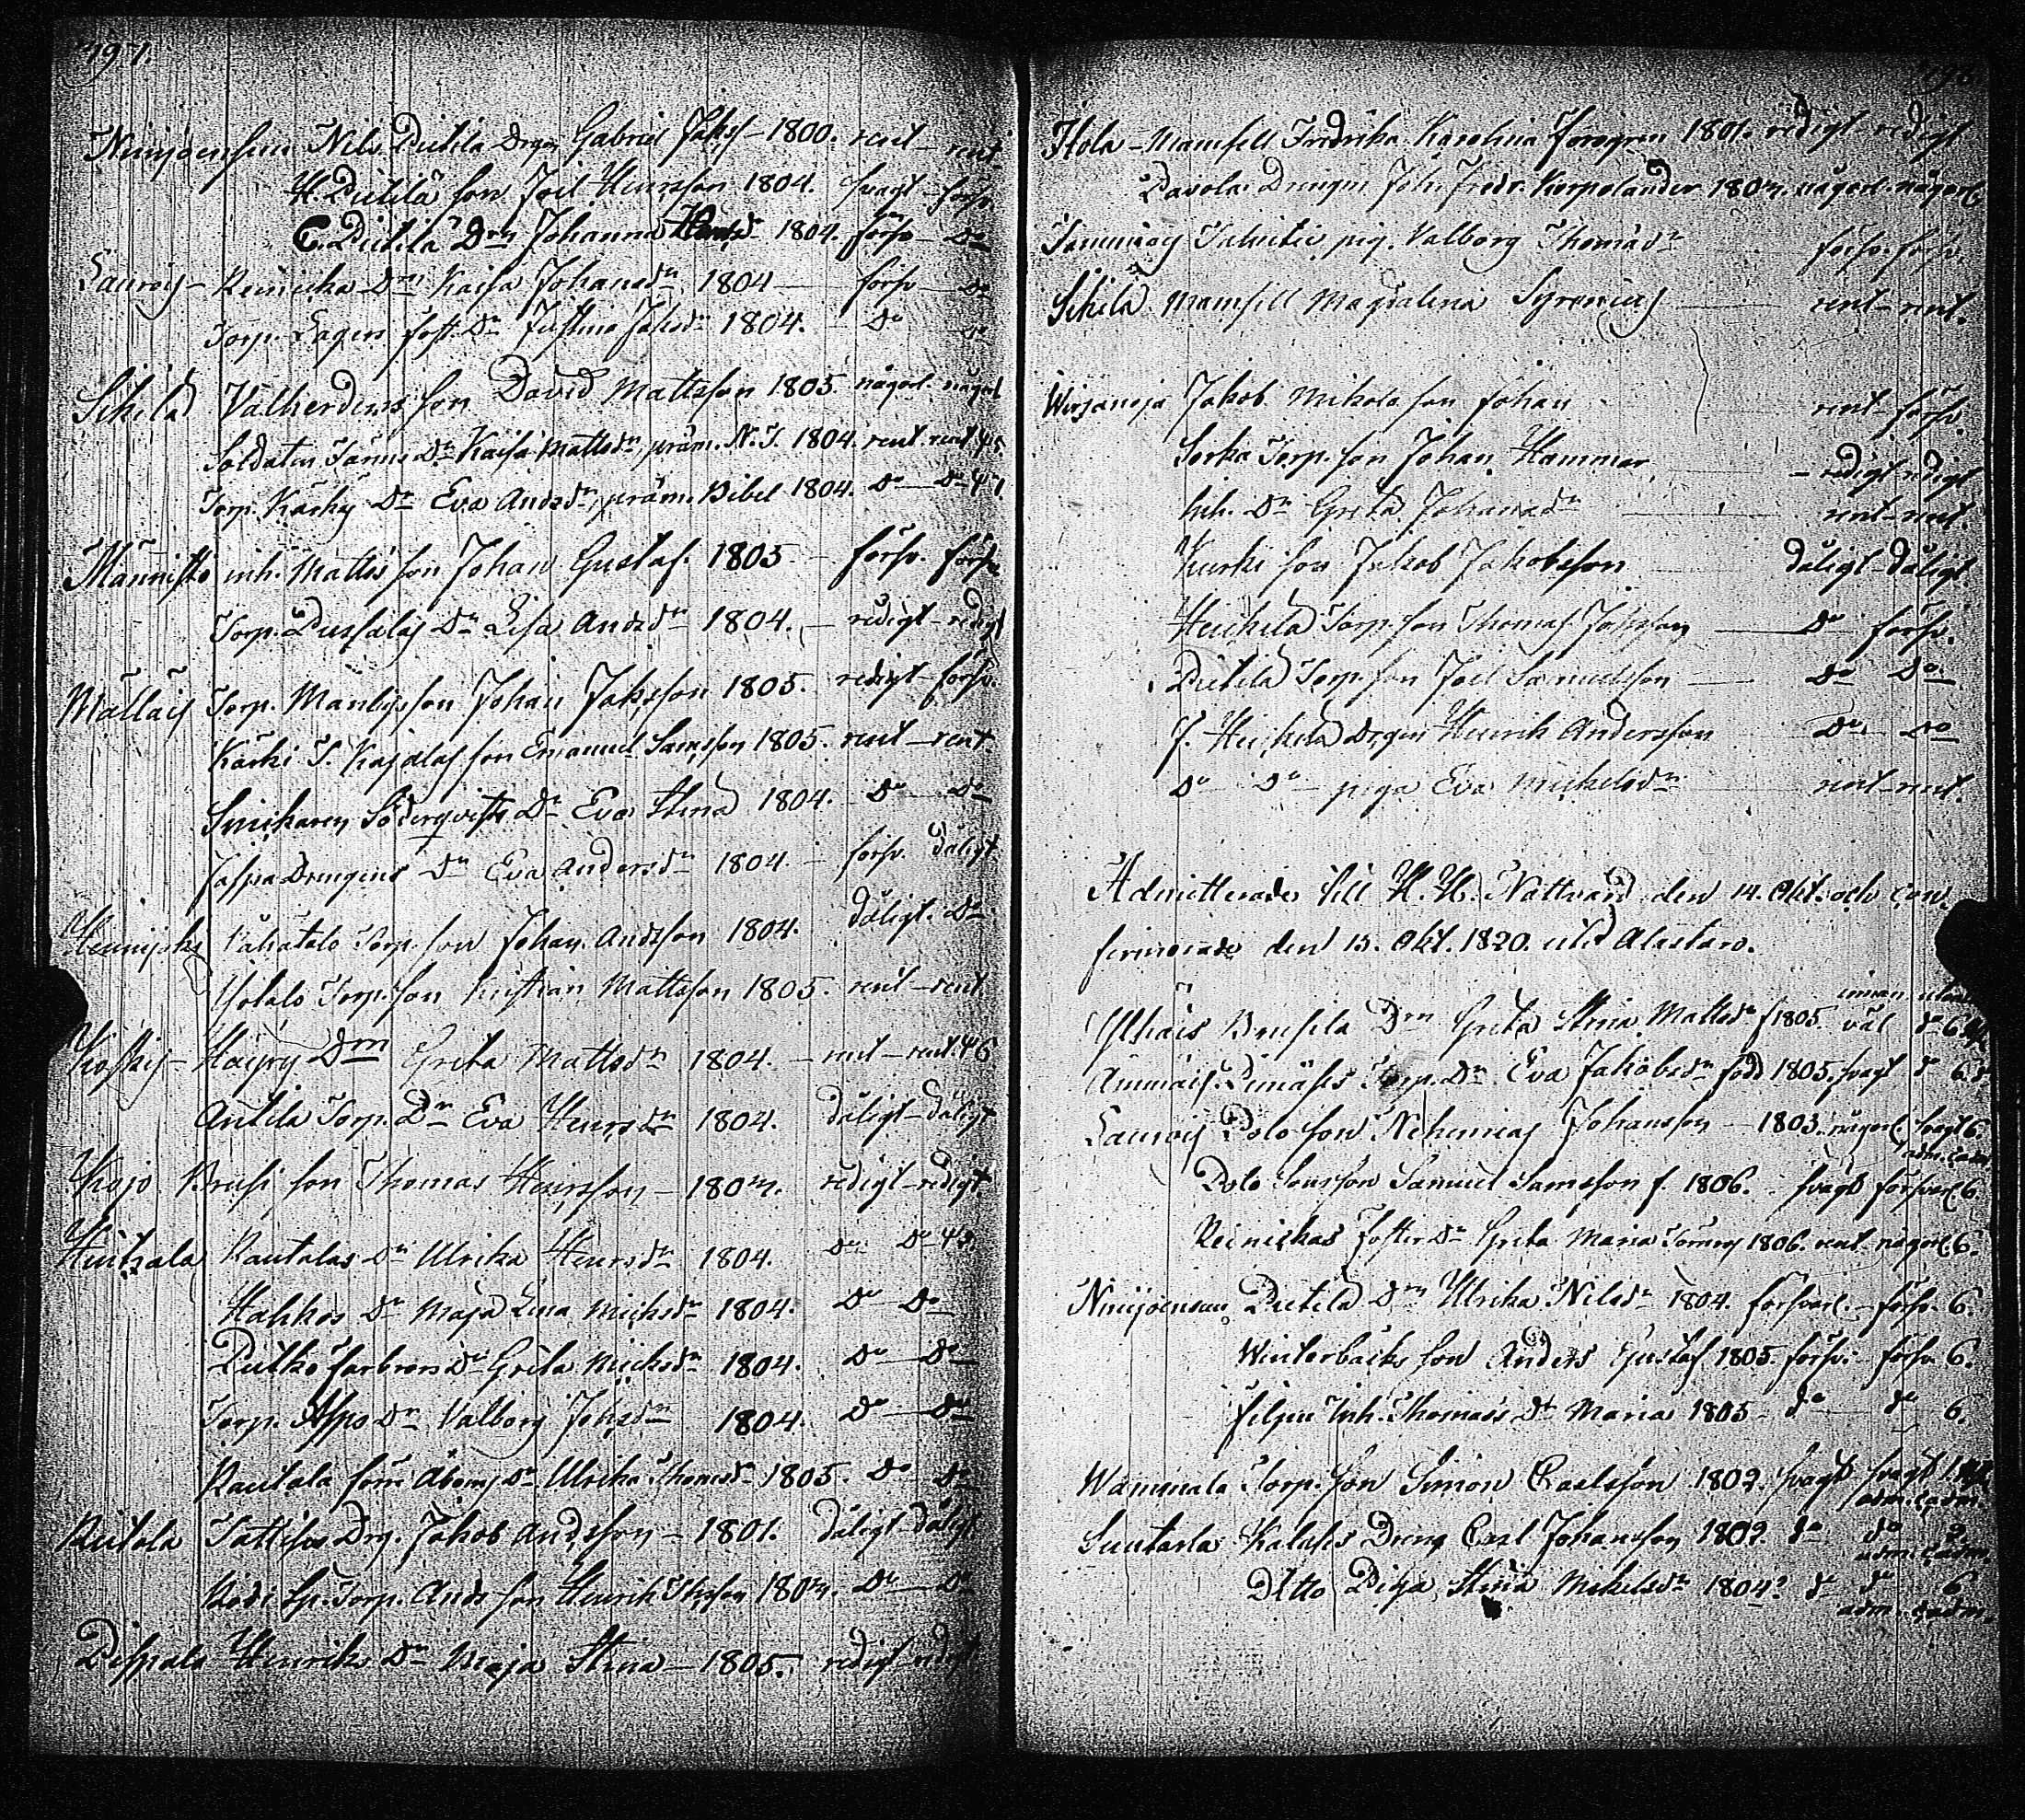 497.
Niinijoensuu Nils Pietilä Drgn Gabriel Jakss. 1800. rent – rent
H. Pietilä son Joel Henrsson 1804. svagt – försv.
E. Pietilä Drn Johanna Henrsdr 1804. försv. Do
Lauroij – Reinicka Drn Kaisa Johansdr 1804 – försv Do
Torp. Lagers fost. Dr Justina Jaksdr 1804. – Do Do
Sikilä Valherdens son David Mattsson 1805. någorl. någorl
Soldaten Tänns Dr Kaisa Mattsdr präm. N. T. 1804. rent. rent 45.
Torp. Kärkij Dr Eva Andsdr präm. Bibel 1804. Do – Do 47
Männistö inh. Matts son Johan Gustaf. 1805 – försv. försv
Torp. Dr Lisa Andsdr 1804. – redigt – redigt
Mällais Torp. Manbys son Johan Jaksson 1805. redigt – försv.
Kärki T. Kajalas son Emanuel Samsson 1805. rent – rent
Snickaren Söderqvists Dr Eva Stina 1804. Do – Do
Jaspa Drengens Dr Eva Andersdr 1804. – försv. dåligt
Vähätalo Torp. son Johan Andsson 1804. dåligt. Do
Yotalo Torp. son Kristian Mattsson 1805. rent – rent
Koskis – Haijpy Drn Greta Mattsdr 1804. – rent – rent 46
Anttila Torp. Dr Eva Henrsdr 1804. dåligt – dåligt
Kojo Prusi son Thomas Henrsson – 1804. redigt – redigt
Huitzala Rautalas Dr Ulrika Henrsdr 1804. Do Do 43.
Hahkos Dr Maja Lena Michsdr 1804. Do Do
Putko farbrors Dr Greta Michsdr 1804. Do – Do
Torp. Dr Valborg Jaksdr 1804. Do – Do
Rautala Dr Ulrika Thomsdr 1805. Do – Do
Ruitola Drg. Jakob Andsson – 1801. dåligt – dåligt
Torp. Ands son Henrik 1804. Do – Do
Pispala Henriks Dr Maja Stina – 1805. redigt – redigt
498
Ilola – Mamsell Fredrika Karolina Forsgren 1801. redigt redigt
Pavola Drengen Joh. Fredr. Korpolander 1804. någorl. någorl
Tammioij pig. Valborg Thomasdr försv. försv.
Sikilä Mamsell Magdalena Syrenius rent – rent.
Wirzanoja Jakob Mikola son Johan rent – försv
Sorka Torp. son Johan Hammar – redigt – redigt
Inh. Dr Greta Johansdr rent – rent.
Kurki son Jakob Jakobsson dåligt – dåligt
Heickilä Torp. son Thomas Jaksson Do försv.
Pietilä Torp. son Joel Samuelsson Do Do
J. Heickilä Drgen Henrik Andersson Do Do
Do Do piga Eva Mickelsdr rent – rent.
Admitterade till H. H. Nattvard den 14. Okt. och con
firmerade den 15. Okt. 1820. uti Alastaro.
innan utan
Ylhäis Prusila Drn Greta Stina Mattsdr f 1805. väl do 6.
Ämmäis. Torp. Dr Eva Jakobsdr född 1805. svagt do 6.
Lauroij Polo son Nehemias Johansson – 1803. någorl. svagt 6.
adm. cadm.
Polo Sonson Samuel Samsson f. 1806. svagt försvarl. 6
Reinickas foster Dr Greta Maria 1806. rent – någorl. 6.
Niinijoensuu Pietilä Drn Ulrika Nilsdr 1804. försvarl. – försv. 6.
Winterbäcks son Anders Gustaf 1805. försv. – försv. 6.
Filpu Inh. Thomas's Dr Maria 1805 – do do 6.
Wammala Torp. son Simon Carlsson 1802. svagt svagt
adm. cadm.
Suutarla Kalakes Dreng Carl Johansson 1802. do do 2
adm. cadm.
Ditto Piga Stina Mickelsdr 1804? do do 6
adm. cadm.